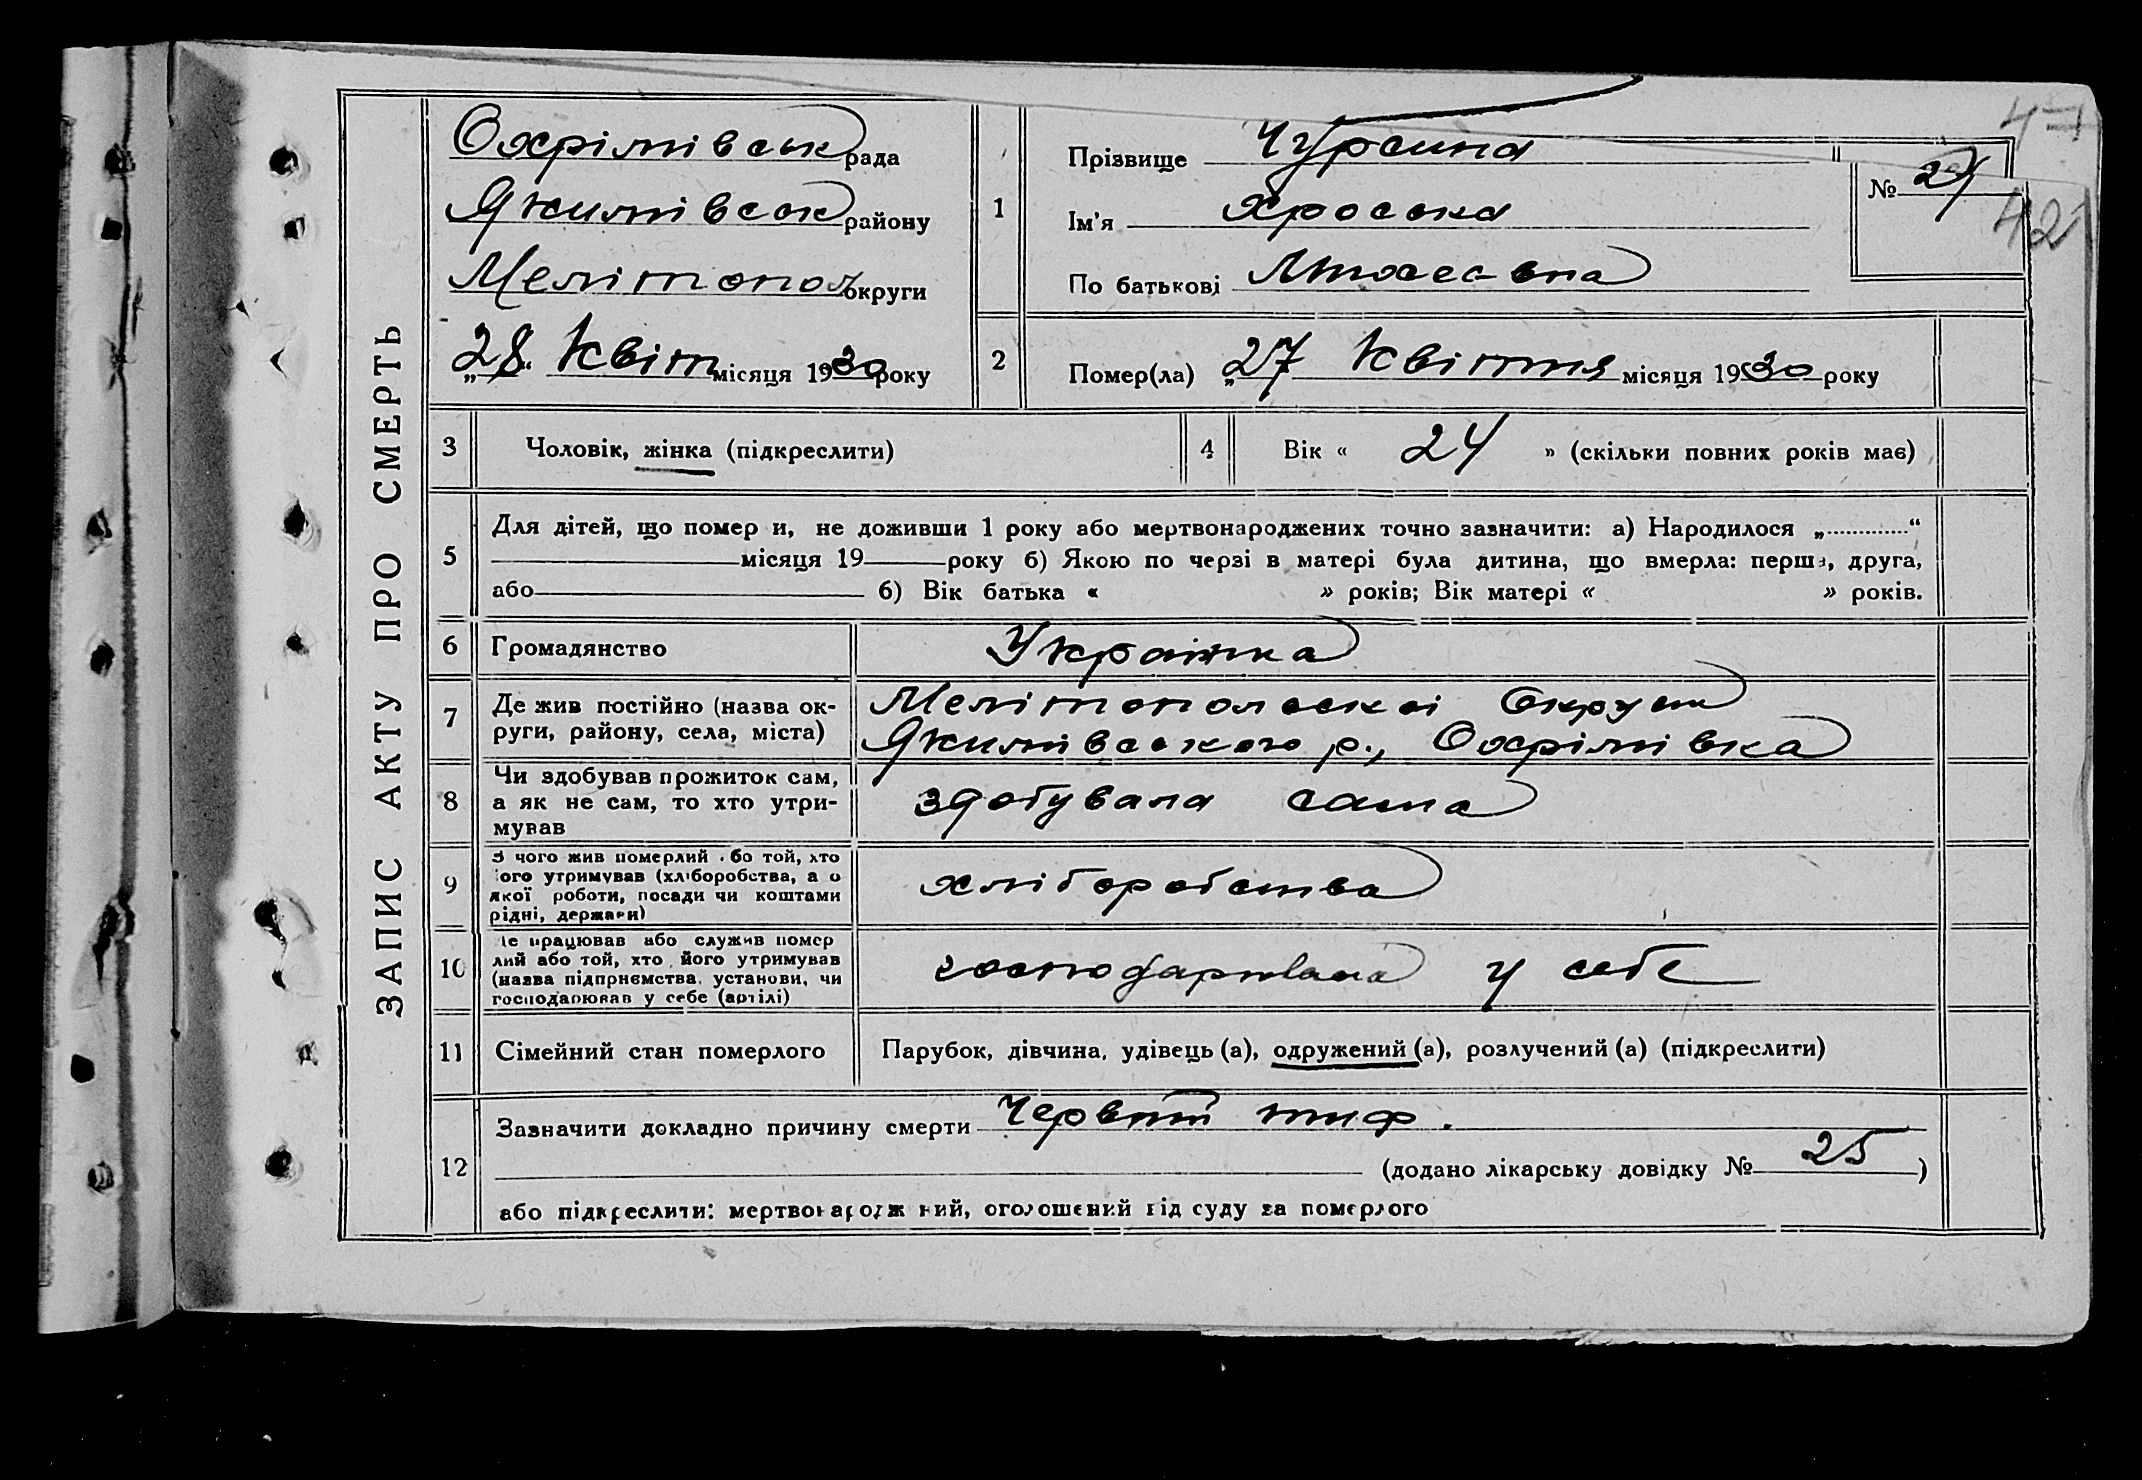 ЗАПИС АКТУ ПРО СМЕРТЬ
Охрімівськ рада
Якимівськ району
Мелітопол округи
„28“ Квітн місяця 1930 року
1
Прізвище Чурсина
Ім'я Хроська
По батькові
№ 27
47
42
2
Помер(ла) „27 Квітня місяця 1930 року
3 Чоловік, жінка (підкреслити)
4 Вік « 24 » (скільки повних років має)
5
Для дітей, що помер и, не доживши 1 року або мертвонароджених точно зазначити: а) Народилося „.............“
місяця 19 року б) Якою по черзі в матері була дитина, що вмерла: перша, друга,
або б) Вік батька « » років; Вік матері « » років.
6 Громадянство Українка
7 Де жив постійно (назва ок-
руги, району, села, міста)
Мелітопольської Округи
Якимівського р., Охрімівка
8 Чи здобував прожиток сам,
а як не сам, то хто утри-
мував
здобувала сама
9 З чого жив померлий або той, хто
його утримував (хліборобства, а о
якої роботи, посади чи коштами
рідні, держави)
хліборобства
10 Де працював або служив помер
лий або той, хто його утримував
(назва підприємства, установи, чи
господарював у себе (артілі)
господарювала у себе
11 Сімейний стан померлого Парубок, дівчина, удівець (а), одружений (а), розлучений (а) (підкреслити)
12
Зазначити докладно причину смерти Червний тиф.
(додано лікарську довідку № 25 )
або підкреслити: мертвонароджений, оголошений від суду за померлого